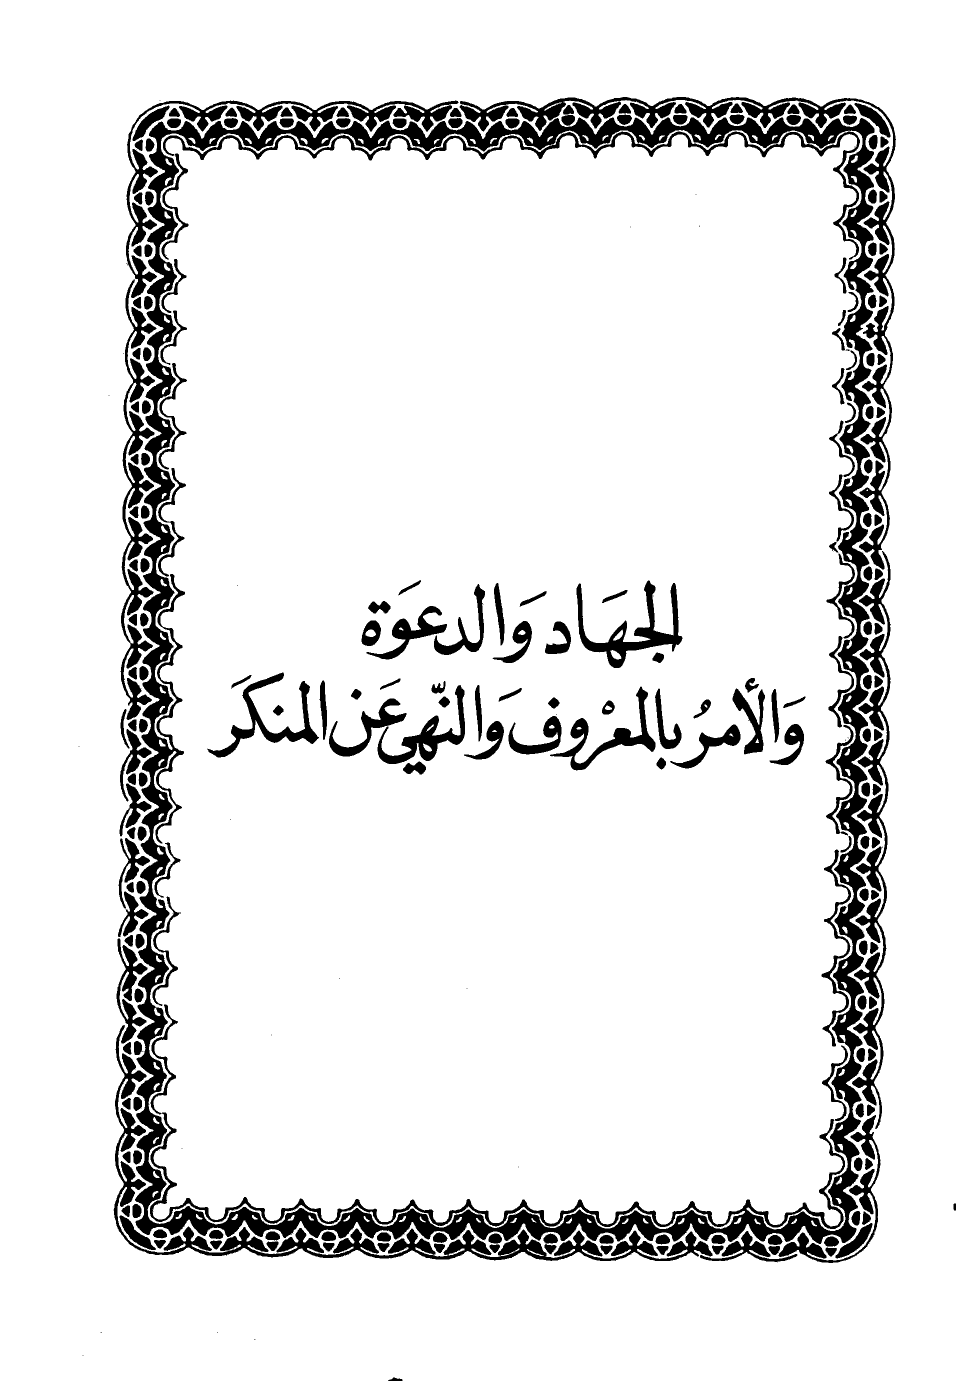 الجهَاد وَالدعوَة
وَالأمرُ بالمعْروف وَالنّهي عَن المنكَر